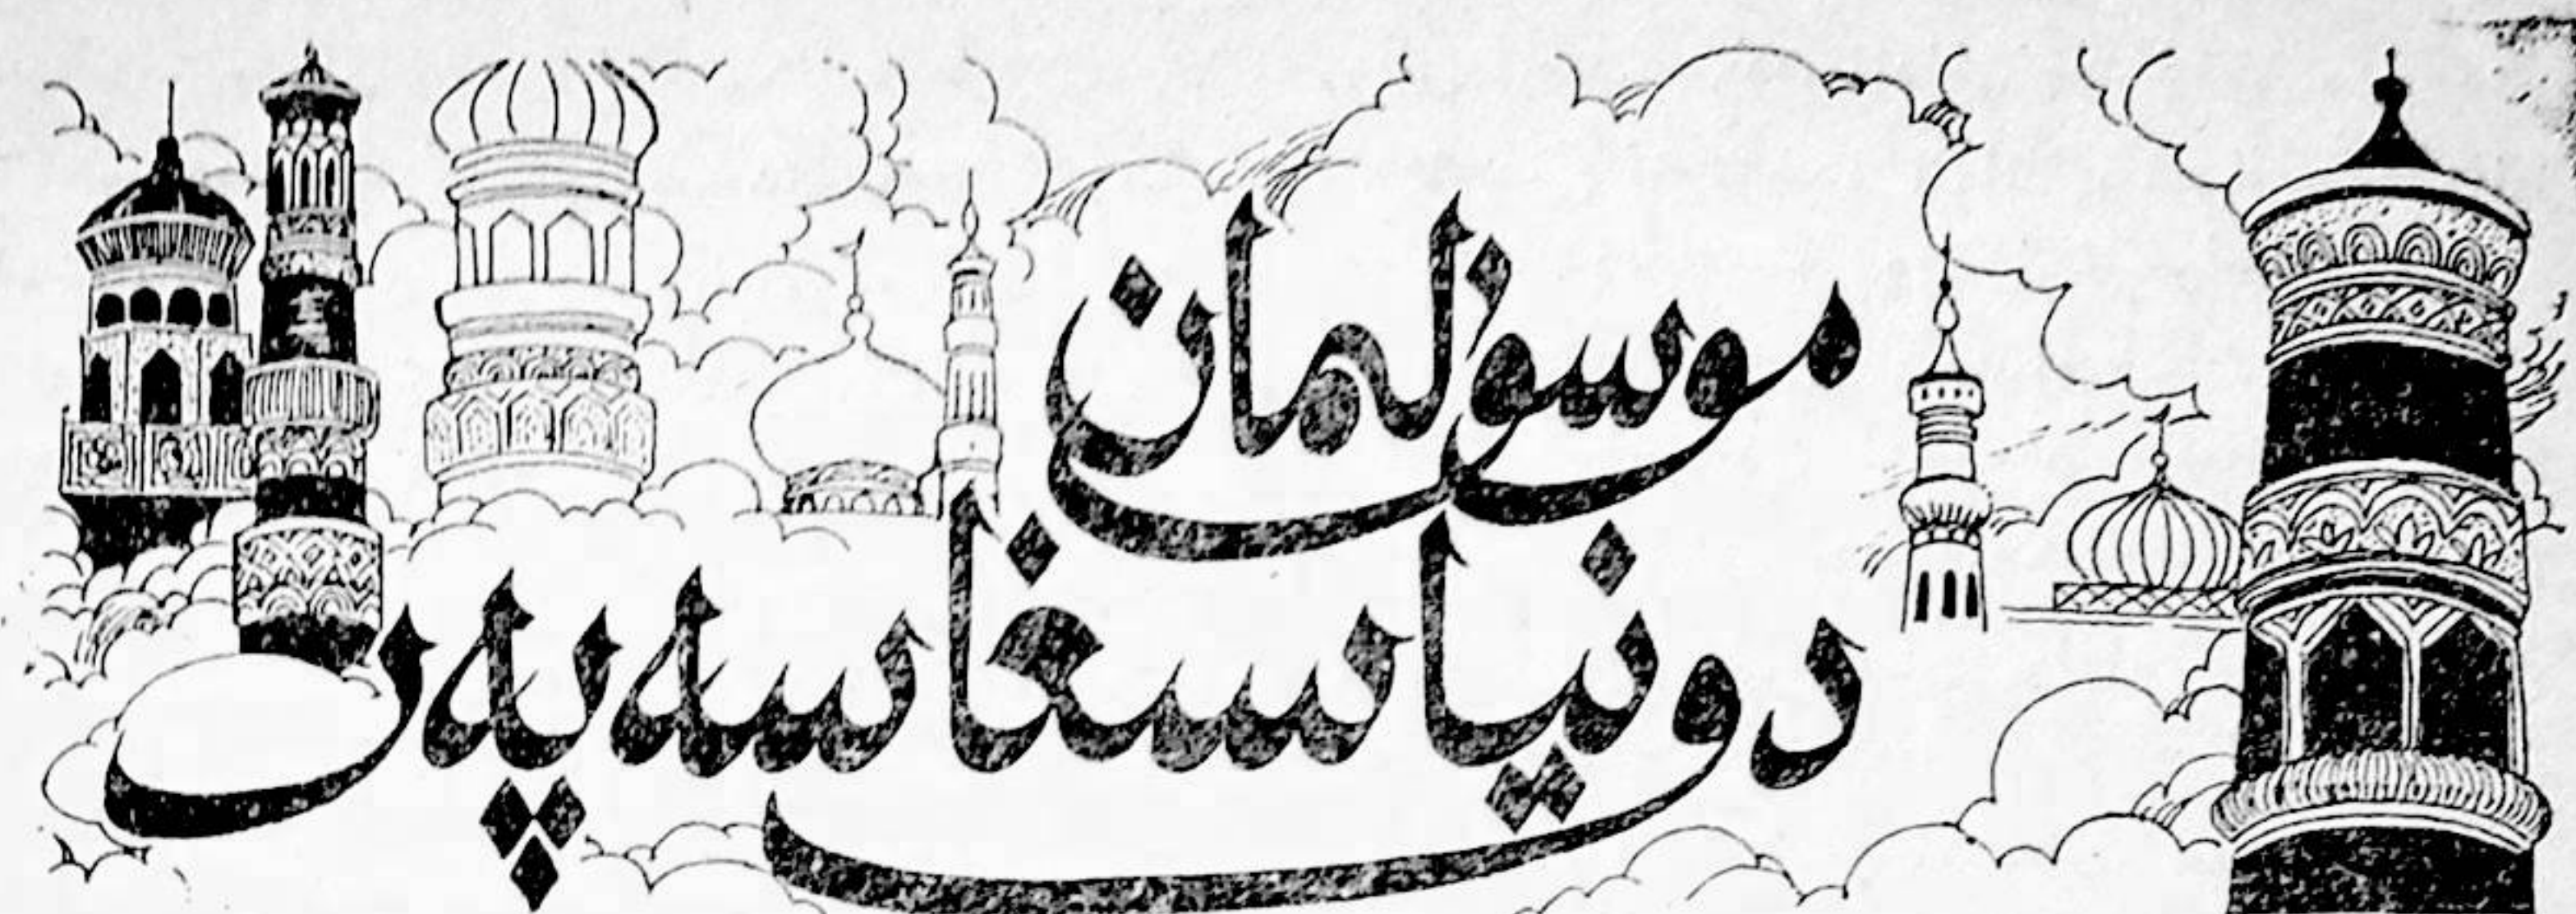 موسۇلمان
دونياسغا سەپەر